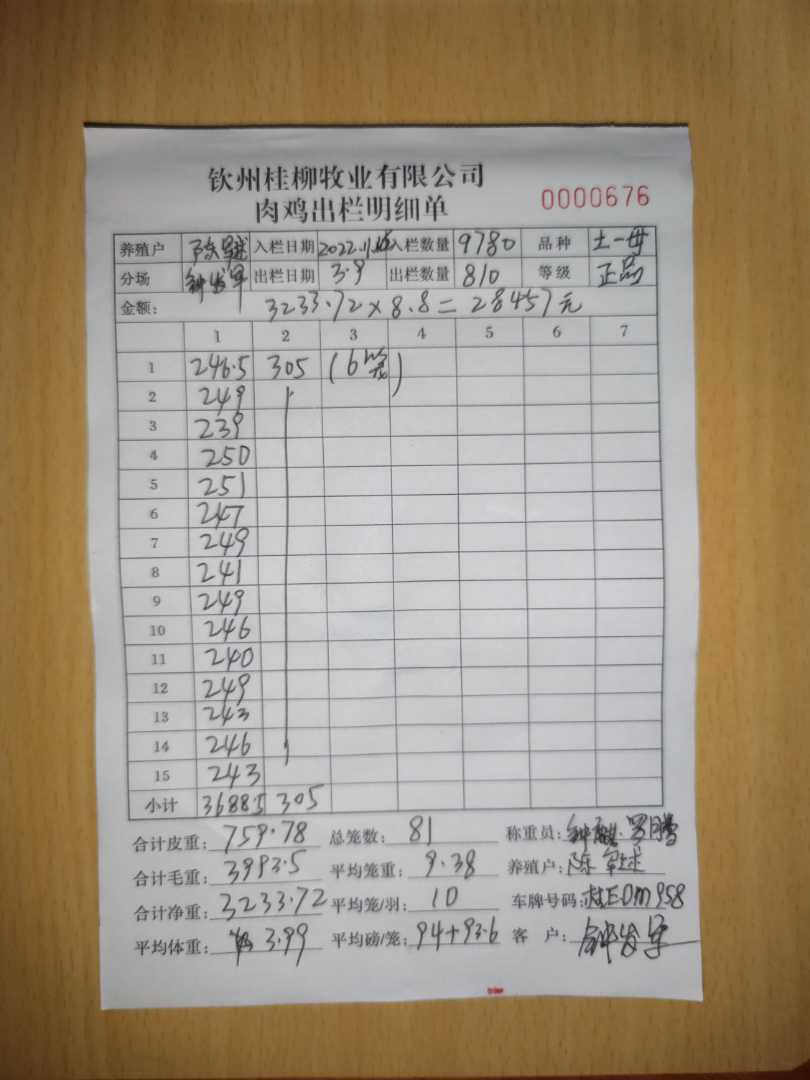 钦州桂柳牧业有限公司
肉鸡出栏明细单
0000676
养殖户 陈 入栏日期 2022.11. 入栏数量 9780 品种 土一母
分场 钟发军 出栏日期 3.9 出栏数量 810 等级 正品
金额: 3233.72×8.8=28457元
1 2 3 4 5 6 7
1 246.5 305 (6笼)
2 249
3 239
4 250
5 251
6 247
7 249
8 241
9 249
10 246
11 240
12 249
13 243
14 246
15 243
小计 3688.5 305
合计皮重: 759.78 总笼数: 81 称重员: 钟 罗腾
合计毛重: 3993.5 平均笼重: 9.38 养殖户: 陈
合计净重: 3233.72 平均笼/羽: 10 车牌号码: 桂EDM958
平均体重: 3.99 平均磅/笼: 94+93.6 客 户: 钟发军